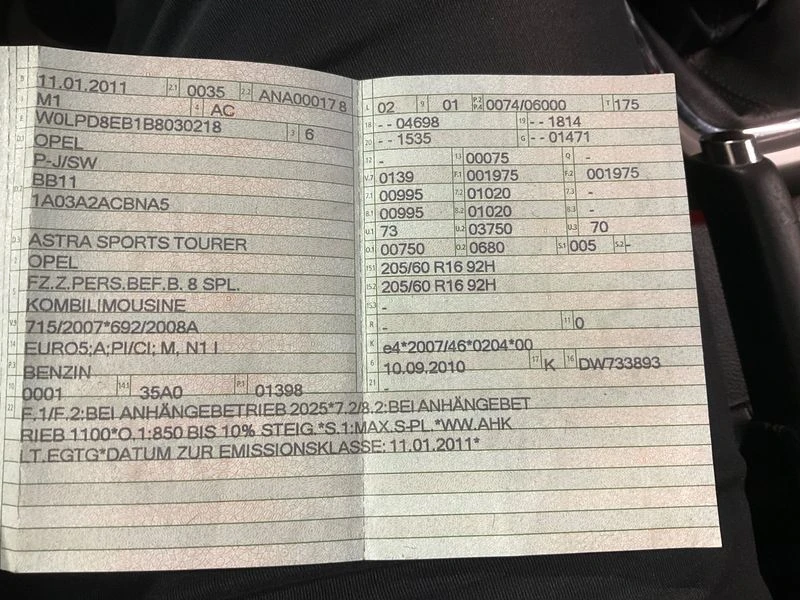 B 11.01.2011 2.1 0035 2.2 ANA00017 8
J M1 4 AC
E W0LPD8EB1B8030218 3 6
D.1 OPEL
P-J/SW
D.2 BB11
1A03A2ACBNA5
D.3 ASTRA SPORTS TOURER
2 OPEL
5 FZ.Z.PERS.BEF.B. 8 SPL.
KOMBILIMOUSINE
V.9 715/2007*692/2008A
14 EURO5;A;PI/CI; M, N1 I
P.3 BENZIN
10 0001 14.1 35A0 P.1 01398
22 F.1/F.2:BEI ANHÄNGEBETRIEB 2025*7.2/8.2:BEI ANHÄNGEBET
RIEB 1100*O.1:850 BIS 10% STEIG.*S.1:MAX.S-PL.*WW.AHK
LT.EGTG*DATUM ZUR EMISSIONSKLASSE: 11.01.2011*
L 02 9 01 P.2 P.4 0074/06000 T 175
18 - - 04698 19 - - 1814
20 - - 1535 G - - 01471
12 - 13 00075 Q -
V.7 0139 F.1 001975 F.2 001975
7.1 00995 7.2 01020 7.3 -
8.1 00995 8.2 01020 8.3 -
U.1 73 U.2 03750 U.3 70
O.1 00750 O.2 0680 S.1 005 S.2 -
15.1 205/60 R16 92H
15.2 205/60 R16 92H
15.3 -
R - 11 0
K e4*2007/46*0204*00
6 10.09.2010 17 K 16 DW733893
21 -